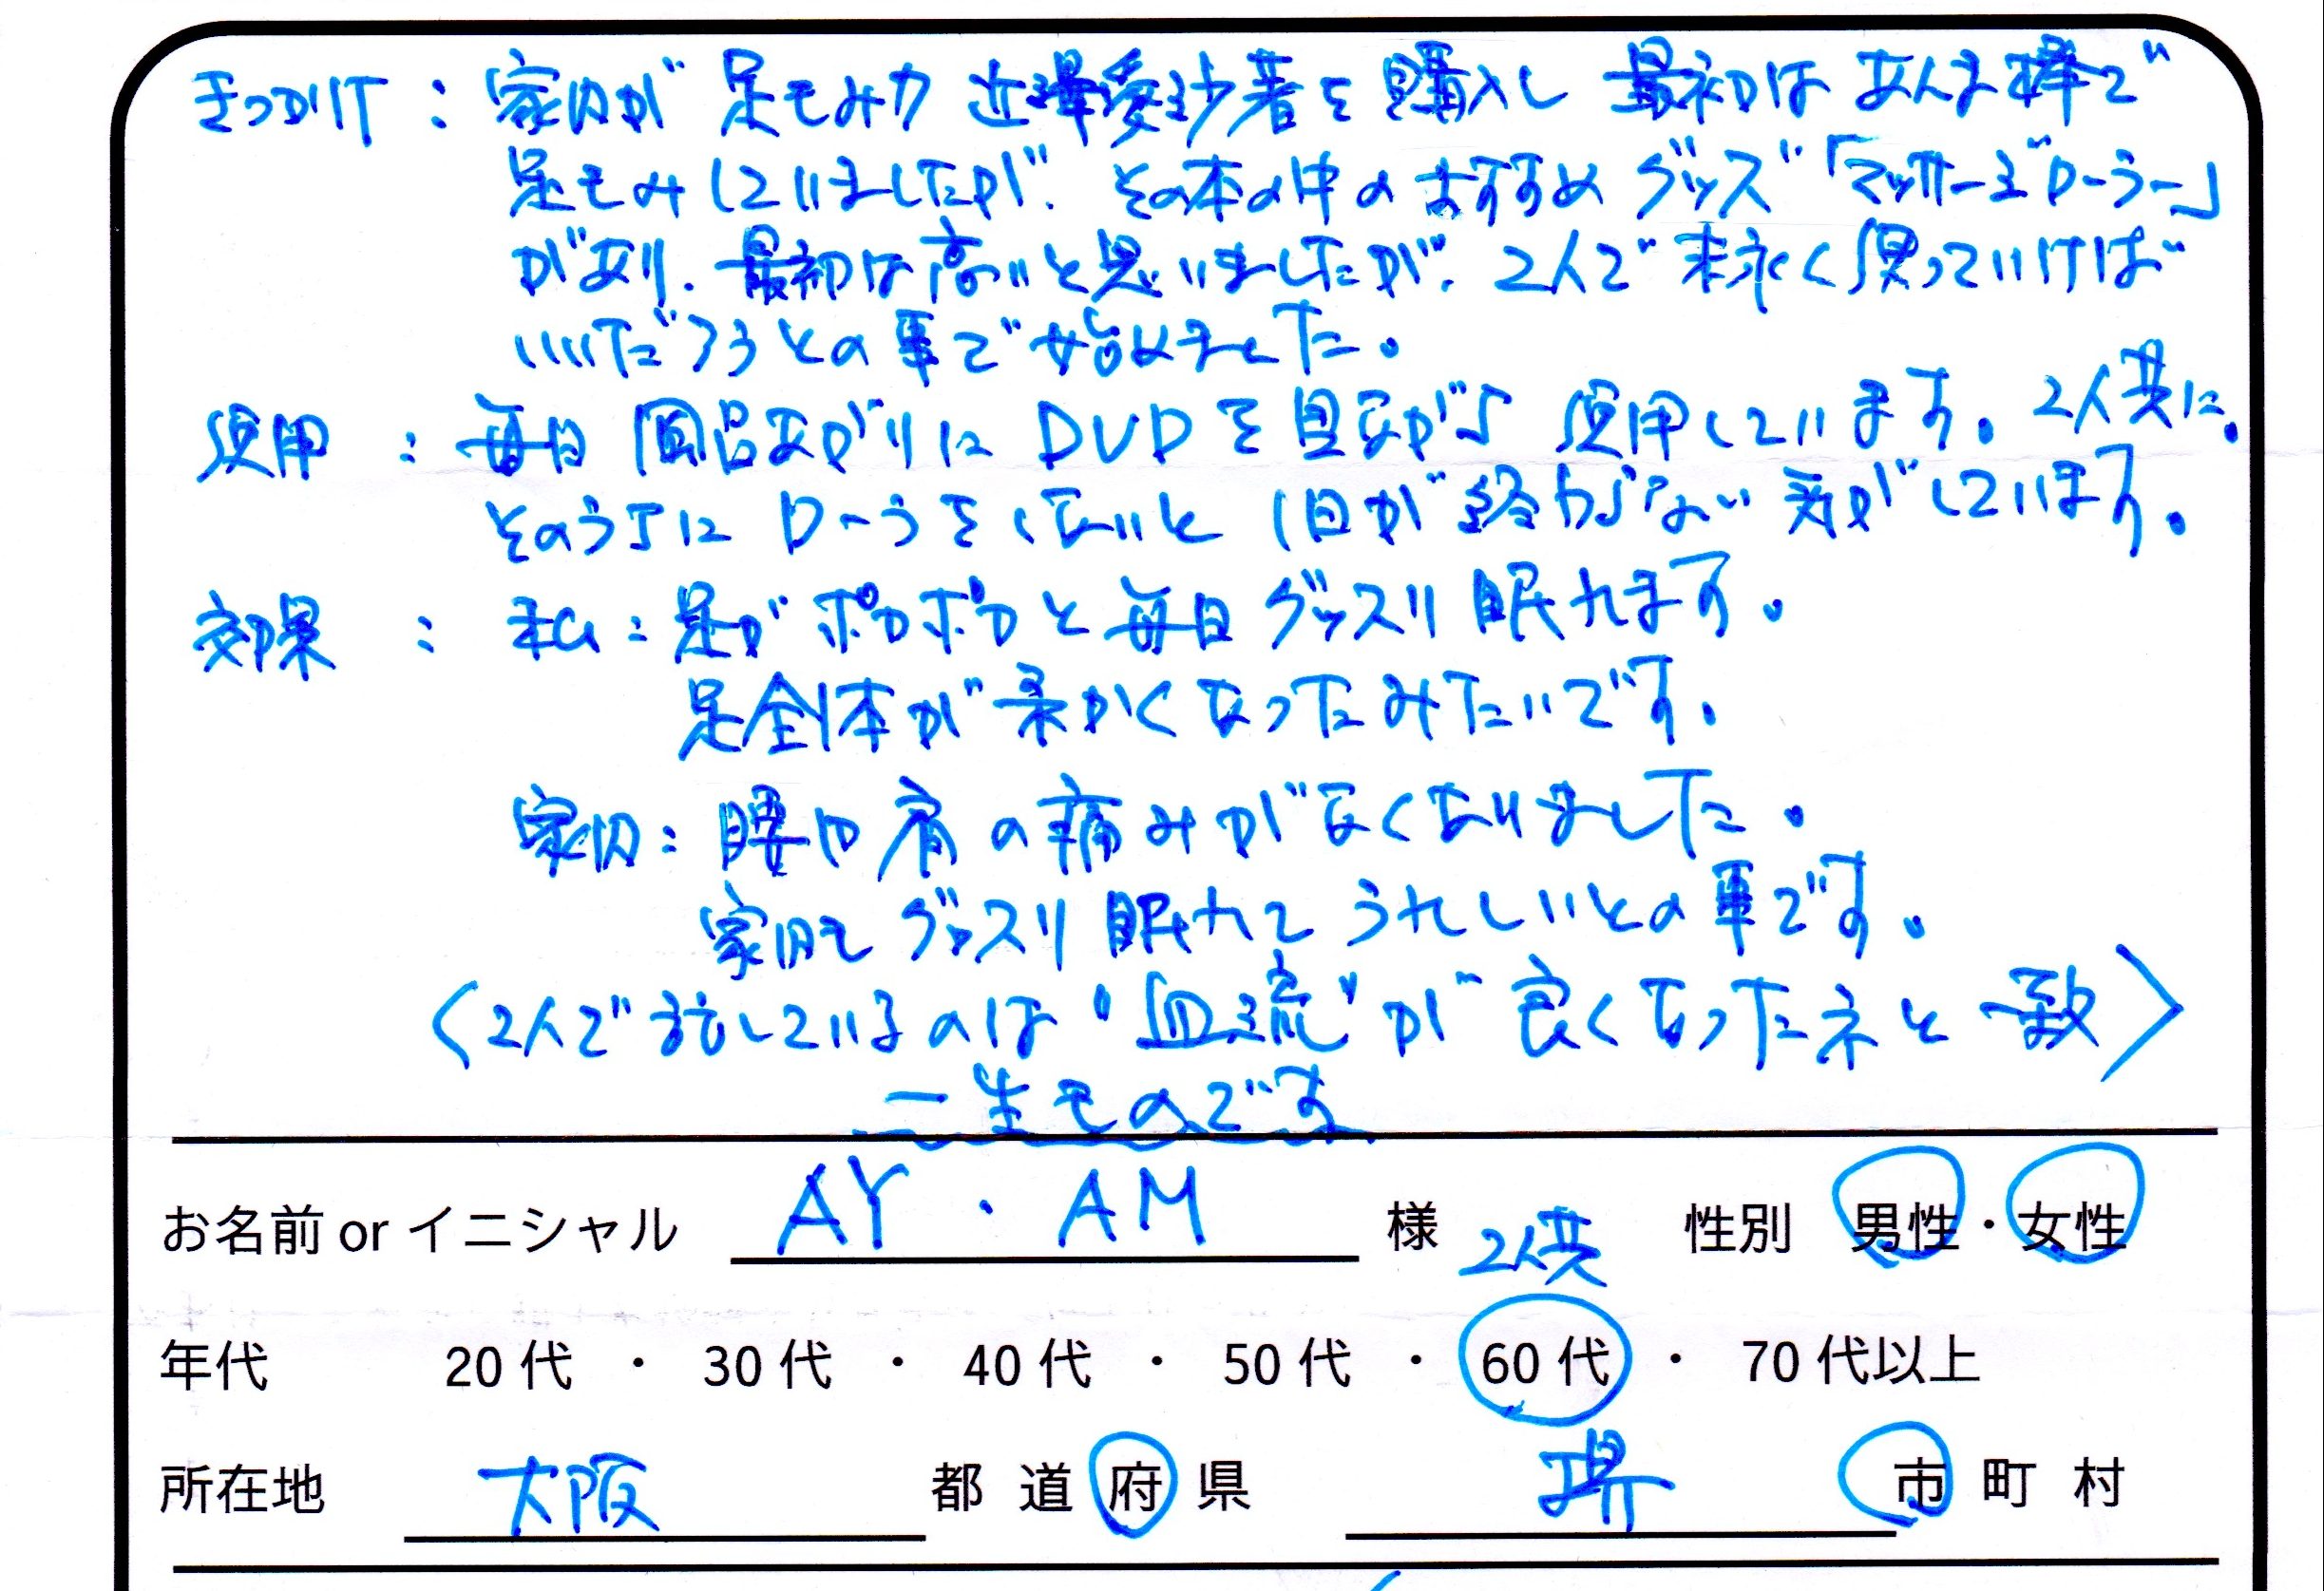 きっかけ : 家内が 足もみ力 近澤愛沙著を購入し 最初は あんま棒で
足もみしていましたが、その本の中のおすすめ グッズ「マッサージローラー」
があり、最初は高いと思いましたが、2人で末永く使っていけば
いいだろうとの事で始めました。
使用 : 毎日 風呂あがりに DVDを見ながら 使用しています。2人共に。
そのうちに ローラをしないと 1日が終わらない気がしています。
効果 : 私 : 足がポカポカと毎日グッスリ眠れます。
足全体が柔かくなったみたいです。
家内 : 腰や肩の痛みがなくなりました。
家内もグッスリ眠れてうれしいとの事です。
〈2人で話しているのは "血流" が良くなったネと一致〉
一生ものです
お名前 or イニシャル AY・AM 様 2人共 性別 男性・女性
年代 20代・30代・40代・50代・60代・70代以上
所在地 大阪 都道府県 堺 市町村